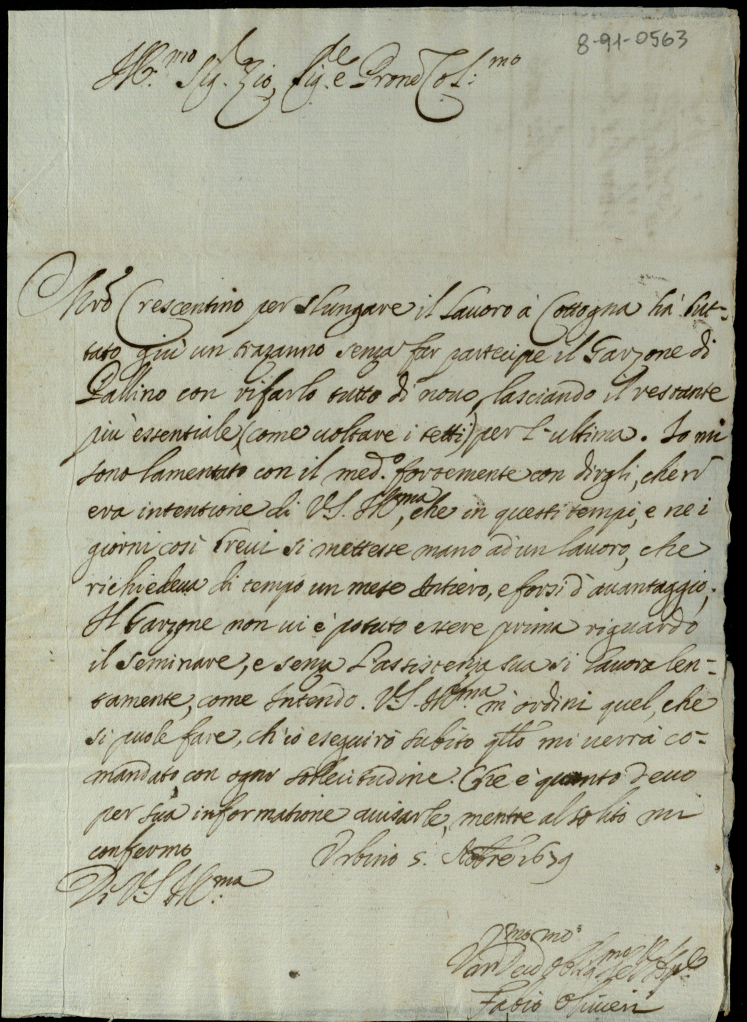 8-91-0563
Ill.mo Sig.r Zio, Sig.re e Prone Col.mo
Mro Crescentino per slungare il lavoro à Cottogna hà but-
tato giù un trazanno senza far partecipe il Garzone di
Pallino con rifarlo tutto di nouo, lasciando il restante
più essentiale (come uoltare i tetti) per l'ultima. Io mi
sono lamentato con il med.o fortemente con dirgli, che
era intentione di V.S. Ill.ma, che in questi tempi, e ne i
giorni così breui si mettesse mano ad un lauoro, che
richiedeua di tempo un mese intiero, e forsi d'auantaggio;
Il Garzone non ui è potuto essere prima riguardo
il seminare, e senza l'assistenza sua si lauora len-
tamente, come intendo. V.S. Ill.ma m'ordini quel, che
si puole fare, ch'io eseguirò subito qllo mi uerrà co-
mandato con ogni sollecitudine. Che è quanto deuo
per sua informatione auisarle, mentre al solito mi
confermo Urbino 5. 1639
Di V.S. Ill.ma
Fabio Oliuieri